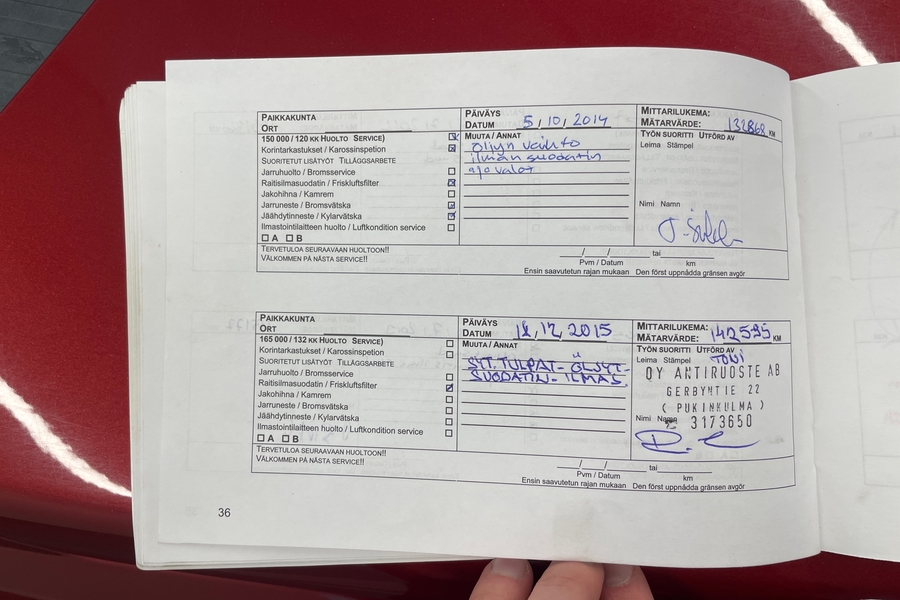 PAIKKAKUNTA
ORT
PÄIVÄYS
DATUM 5/10/2014
MITTARILUKEMA:
MÄTARVÄRDE: 132868 KM
150 000 / 120 KK HUOLTO SERVICE)
Korintarkastukset / Karossinspetion
SUORITETUT LISÄTYÖT TILLÄGGSARBETE
Jarruhuolto / Bromsservice
Raitisilmasuodatin / Friskluftsfilter
Jakohihna / Kamrem
Jarruneste / Bromsvätska
Jäähdytinneste / Kylarvätska
Ilmastointilaitteen huolto / Luftkondition service
A B
MUUTA / ANNAT
öljyn vaihto
ilman suodatin
ajo valot
TYÖN SUORITTI UTFÖRD AV
Leima Stämpel
Nimi Namn
TERVETULOA SEURAAVAAN HUOLTOON!!
VÄLKOMMEN PÅ NÄSTA SERVICE!!
/ / tai
Pvm / Datum km
Ensin saavutetun rajan mukaan Den först uppnådda gränsen avgör
PAIKKAKUNTA
ORT
PÄIVÄYS
DATUM 2015
MITTARILUKEMA:
MÄTARVÄRDE: 142595 KM
165 000 / 132 KK HUOLTO SERVICE)
Korintarkastukset / Karossinspetion
SUORITETUT LISÄTYÖT TILLÄGGSARBETE
Jarruhuolto / Bromsservice
Raitisilmasuodatin / Friskluftsfilter
Jakohihna / Kamrem
Jarruneste / Bromsvätska
Jäähdytinneste / Kylarvätska
Ilmastointilaitteen huolto / Luftkondition service
A B
MUUTA / ANNAT
SYT.TULPAT- ÖLJYT-
SUODATIN- ILMAS.
TYÖN SUORITTI UTFÖRD AV
Leima Stämpel TONI
OY ANTIRUOSTE AB
GERBYNTIE 22
( PUKINKULMA )
Nimi Namn 3173650
TERVETULOA SEURAAVAAN HUOLTOON!!
VÄLKOMMEN PÅ NÄSTA SERVICE!!
/ / tai
Pvm / Datum km
Ensin saavutetun rajan mukaan Den först uppnådda gränsen avgör
36